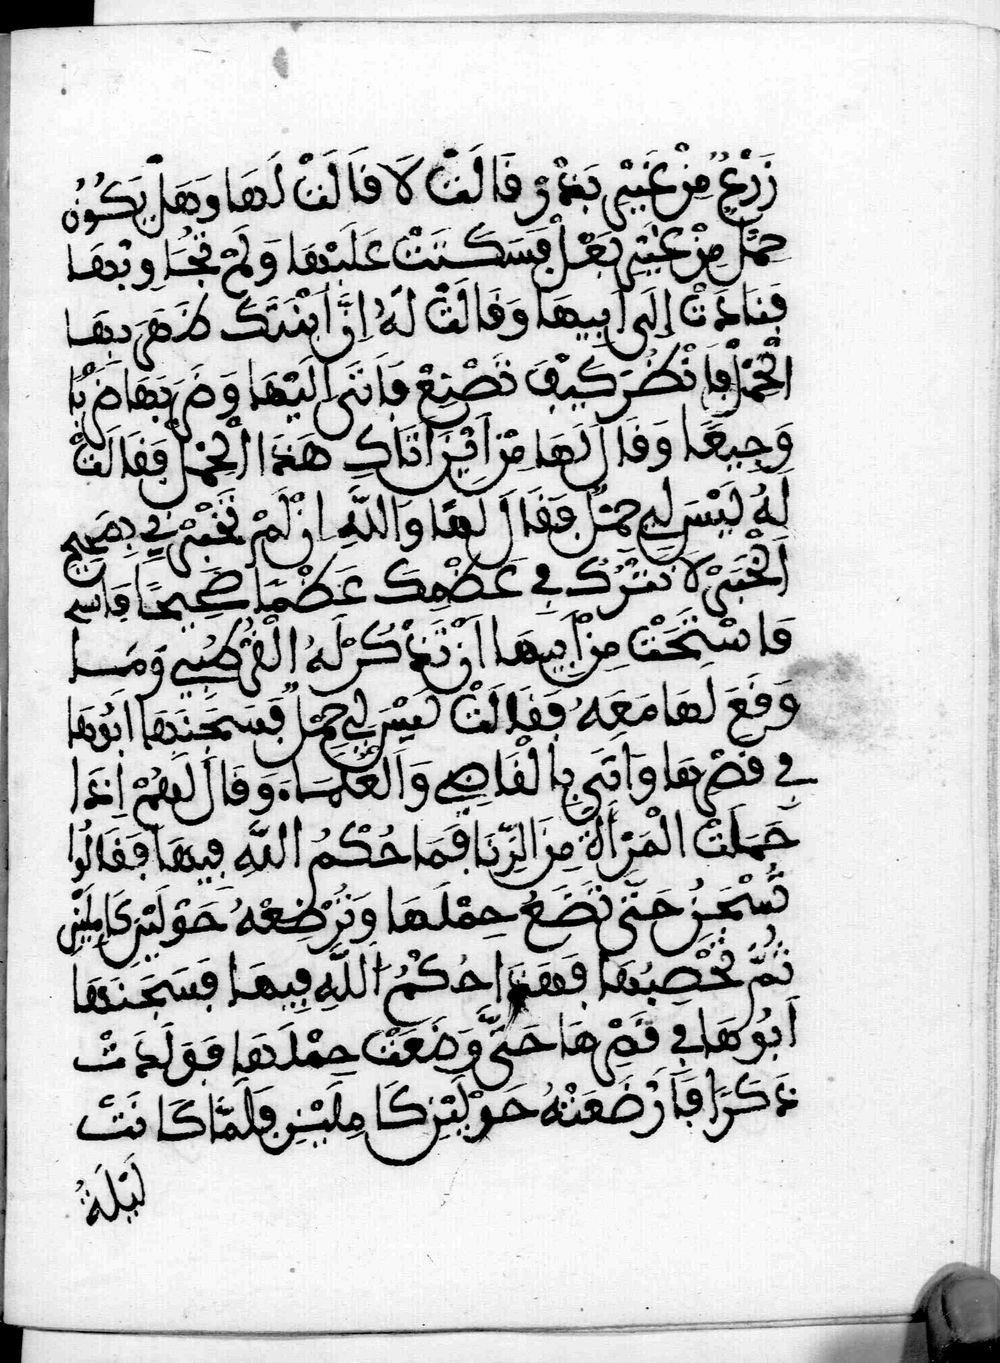 زَرْعٌ مِنْ غَيْرِ بَذْرٍ قَالَتْ لَا قَالَتْ لَهَا وَهَلْ يَكُونُ
حَمْلٌ مِنْ غَيْرِ بَعْلٍ فَسَكَتَتْ عَلَيْهَا وَلَمْ تُجَاوِبْهَا
فَنَادَتْ إِلَى أَبِيهَا وَقَالَتْ لَهُ إِنَّ ابْنَتَكَ ظَهَرَ بِهَا
الْحَمْلُ فَانْظُرْ كَيْفَ تَصْنَعُ فَأَتَى إِلَيْهَا وَضَرَبَهَا ضَرْبًا
وَجِيعًا وَقَالَ لَهَا مِنْ أَيْنَ أَتَاكِ هَذَا الْحَمْلُ فَقَالَتْ
لَهُ لَيْسَ لِي حَمْلٌ فَقَالَ لَهَا وَاللَّهِ إِنْ لَمْ تُخْبِرْنِي بِصَحِيحِ
الْخَبَرِ لَا نَتْرُكُ فِي عَظْمِكِ عَظْمًا صَحِيحًا فَاسْ
فَاسْتَحَتْ مِنْ أَبِيهَا أَنْ تَذْكُرَ لَهُ الْقُرْطُبِي وَمَا
وَقَعَ لَهَا مَعَهُ فَقَالَتْ لَيْسَ لِي حَمْلٌ فَسَجَنَهَا أَبُوهَا
فِي قَصْرِهَا وَأَتَى بِالْقَاضِي وَالْعُلَمَاءِ وَقَالَ لَهُمْ إِذَا
حَمَلَتْ الْمَرْأَةُ مِنَ الزِّنَا فَمَا حُكْمُ اللَّهِ فِيهَا فَقَالُوا
تُسْجَنُ حَتَّى تَضَعُ حِمْلَهَا وَتُرْضِعْهُ حَوْلَيْنِ كَامِلَيْنِ
ثُمَّ تُحْصِبُهَا فَهَذَا حُكْمُ اللَّهِ فِيهَا فَسَجَنَهَا
أَبُوهَا فِي قَصْرِهَا حَتَّى وَضَعَتْ حِمْلَهَا فَوَلَدَتْ
ذَكَرًا فَأَرْضَعَتْهُ حَوْلَيْنِ كَامِلَيْنِ فَلَمَّا كَانَتْ
لَيْلَةُ